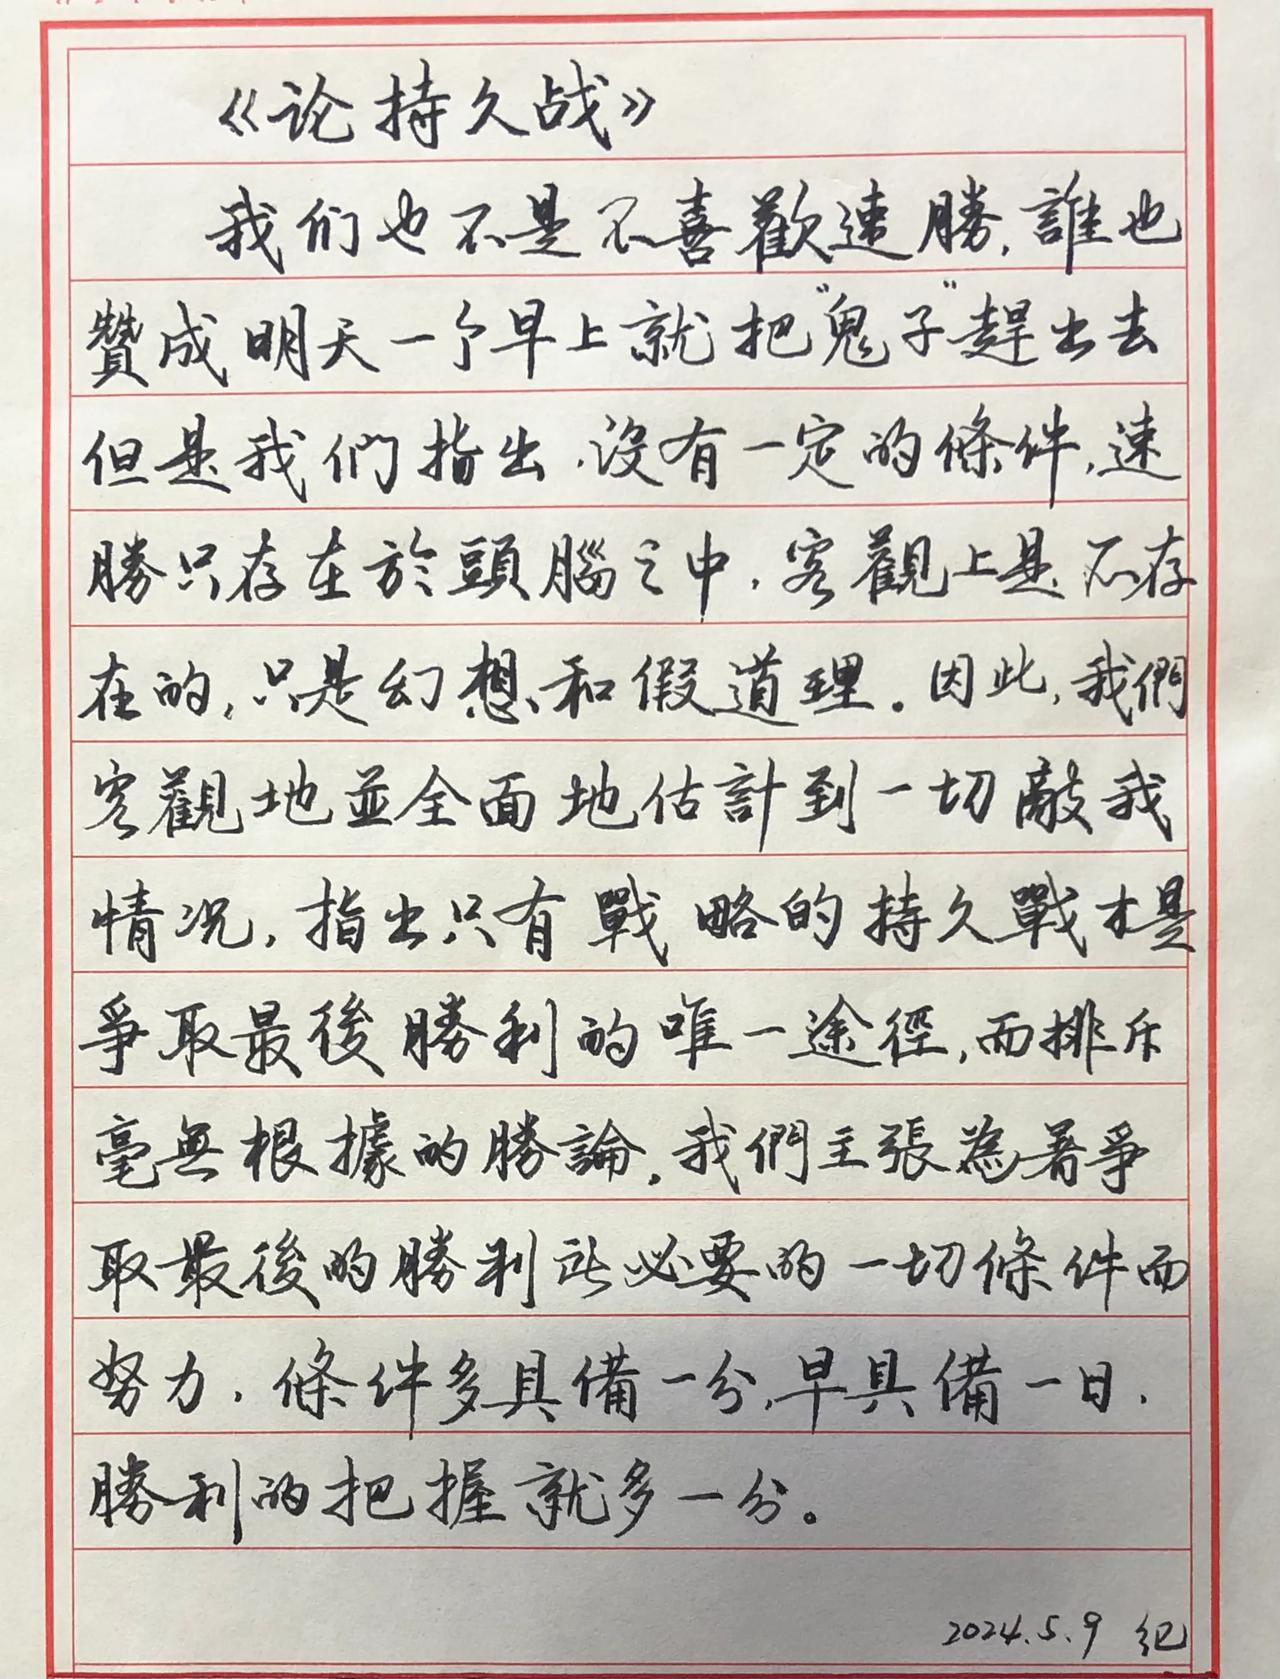 《论持久战》
我们也不是不喜歡速勝,誰也
贊成明天一个早上就把“鬼子”趕出去
但是我們指出,沒有一定的條件,速
勝只存在於頭腦之中,客觀上是不存
在的,只是幻想和假道理。因此,我們
客觀地並全面地估計到一切敵我
情况,指出只有戰略的持久戰才是
爭取最後勝利的唯一途徑,而排斥
毫無根據的勝論。我們主張為著爭
取最後的勝利所必要的一切條件而
努力,條件多具備一分,早具備一日,
勝利的把握就多一分。
2024.5.9 纪